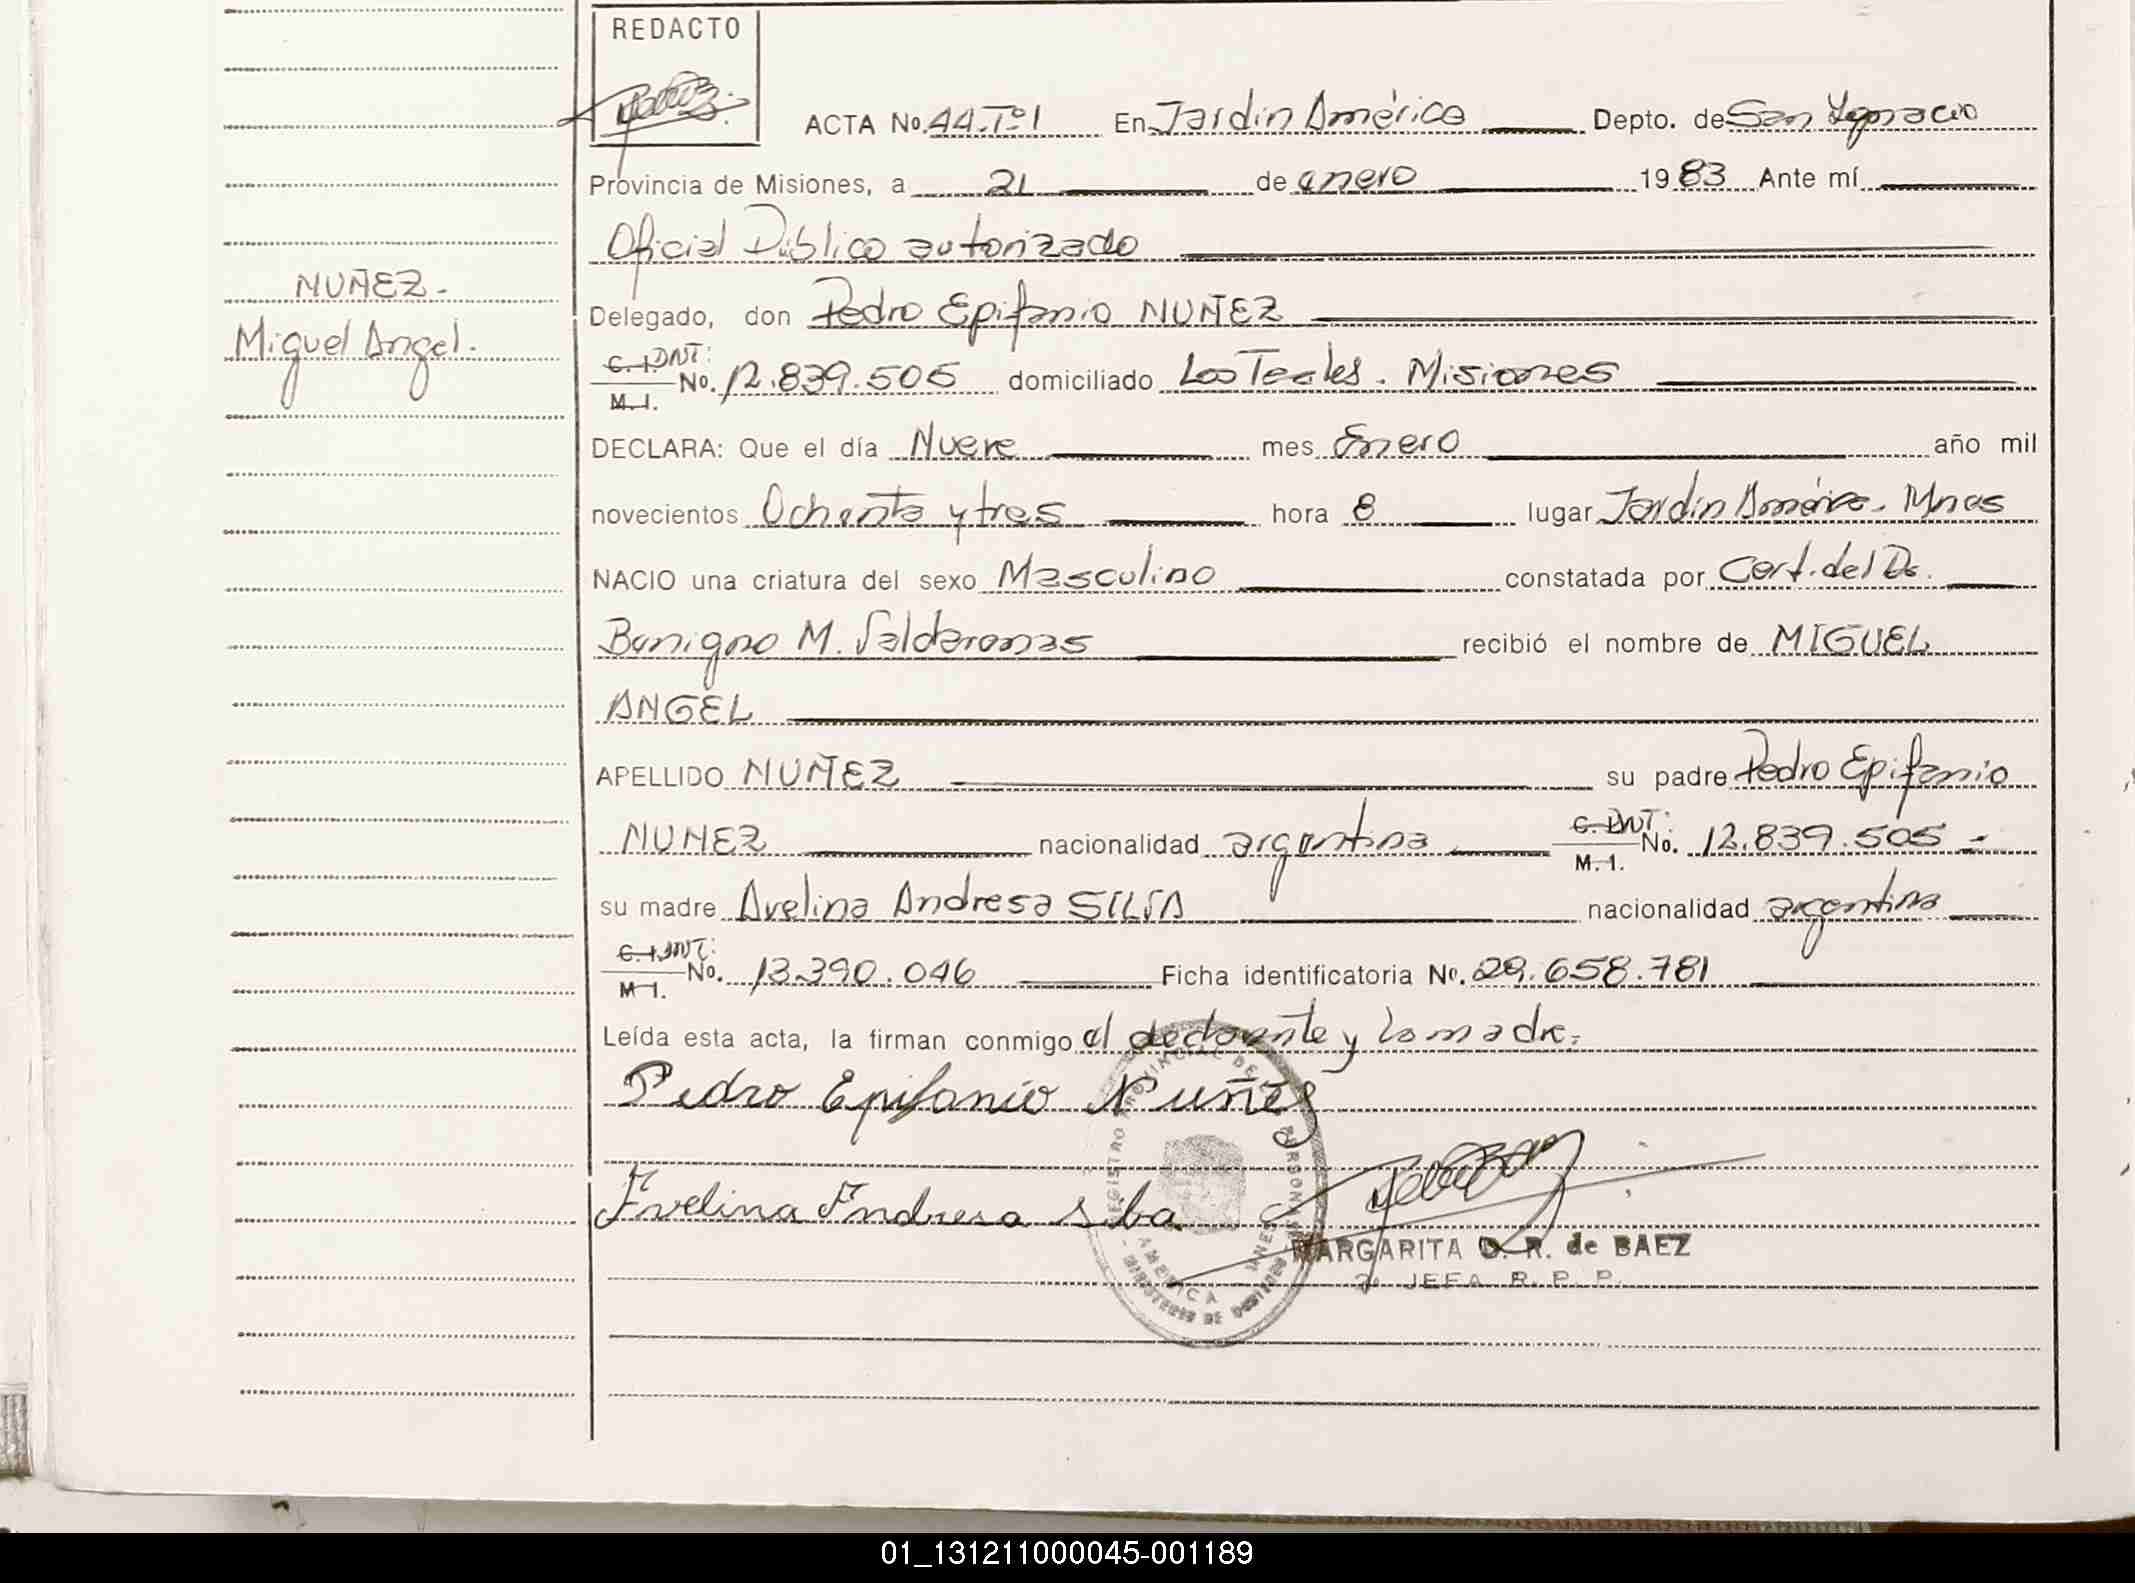 REDACTO
ACTA No. 44.Tº1 En Jardin América Depto. de San Ignacio
Provincia de Misiones, a 21 de enero 1983 Ante mí
Oficial Público autorizado
NUÑEZ.
Delegado, don Pedro Epifanio NUÑEZ
Miguel Angel.
C. I. DNI: M. I. No. 12.839.505 domiciliado Los Teales. Misiones
DECLARA: Que el día Nueve mes Enero año mil
novecientos Ochenta y tres hora 8 lugar Jardin América. Mnes
NACIO una criatura del sexo Masculino constatada por Cert. del Dr.
Benigno M. Valdarenas recibió el nombre de MIGUEL
ANGEL
APELLIDO NUÑEZ su padre Pedro Epifanio
NUÑEZ nacionalidad argentina C. I. DNI: M. I. No. 12.839.505
su madre Avelina Andresa SILVA nacionalidad argentina
C. I. DNI: M. I. No. 13.390.046 Ficha identificatoria No. 29.658.781
Leída esta acta, la firman conmigo el declarante y la madre.
Pedro Epifanio Nuñez
Avelina Andresa Silva
MARGARITA O. R. de BAEZ
JEFA R. P. P.
REGISTRO PROVINCIAL DE LAS PERSONAS
01_131211000045-001189